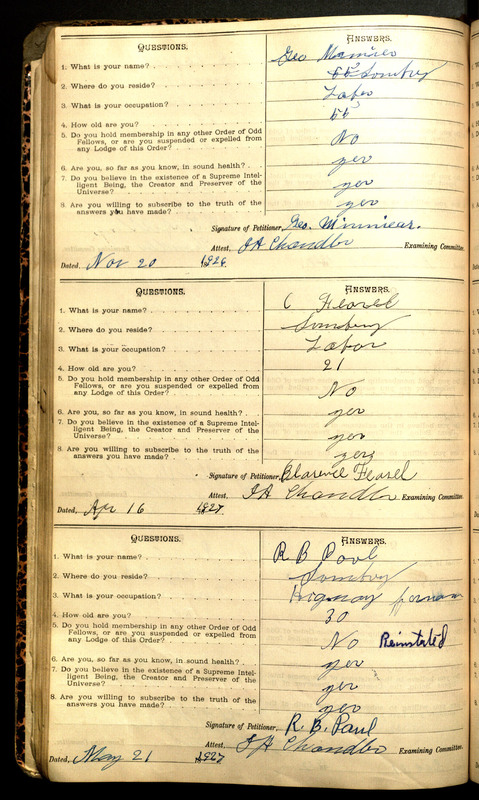 QUESTIONS. ANSWERS.
1. What is your name? Geo
2. Where do you reside? Sunbury
3. What is your occupation? Labor
4. How old are you?
5. Do you hold membership in any other Order of Odd
Fellows, or are you suspended or expelled from
any Lodge of this Order? No
6. Are you, so far as you know, in sound health? yes
7. Do you believe in the existence of a Supreme Intel-
ligent Being, the Creator and Preserver of the
Universe? yes
8. Are you willing to subscribe to the truth of the
answers you have made? yes
Signature of Petitioner, Geo.
Attest, Chandler Examining Committee.
Dated, Nov 20 1926
QUESTIONS. ANSWERS.
1. What is your name? C Fearel
2. Where do you reside? Sunbury
3. What is your occupation? Labor
4. How old are you? 21
5. Do you hold membership in any other Order of Odd
Fellows, or are you suspended or expelled from
any Lodge of this Order? No
6. Are you, so far as you know, in sound health? yes
7. Do you believe in the existence of a Supreme Intel-
ligent Being, the Creator and Preserver of the
Universe? yes
8. Are you willing to subscribe to the truth of the
answers you have made? yes
Signature of Petitioner, Clarence Fearel
Attest, Chandler Examining Committee.
Dated, Apr 16 1927
QUESTIONS. ANSWERS.
1. What is your name? R B
2. Where do you reside? Sunbury
3. What is your occupation?
4. How old are you? 30
5. Do you hold membership in any other Order of Odd
Fellows, or are you suspended or expelled from
any Lodge of this Order? No Reinstated
6. Are you, so far as you know, in sound health? yes
7. Do you believe in the existence of a Supreme Intel-
ligent Being, the Creator and Preserver of the
Universe? yes
8. Are you willing to subscribe to the truth of the
answers you have made? yes
Signature of Petitioner, R. B. Paul
Attest, Chandler Examining Committee.
Dated, May 21 1927